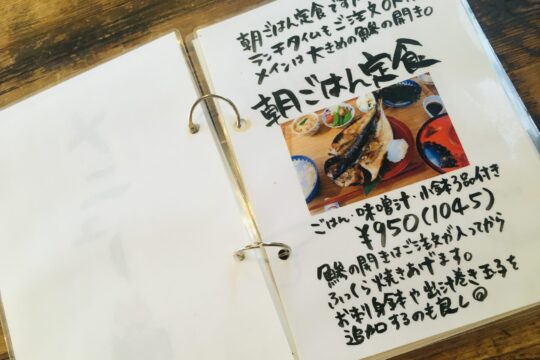 朝ごはん定食ですが
ランチタイムもご注文OK
メインは大きめの鯵の開き。
朝ごはん定食
ごはん・味噌汁・小鉢3品付き
¥950(1045)
鯵の開きはご注文が入ってから
ふっくら焼きあげます。
お刺身鉢や出汁巻き玉子を
追加するのも良し